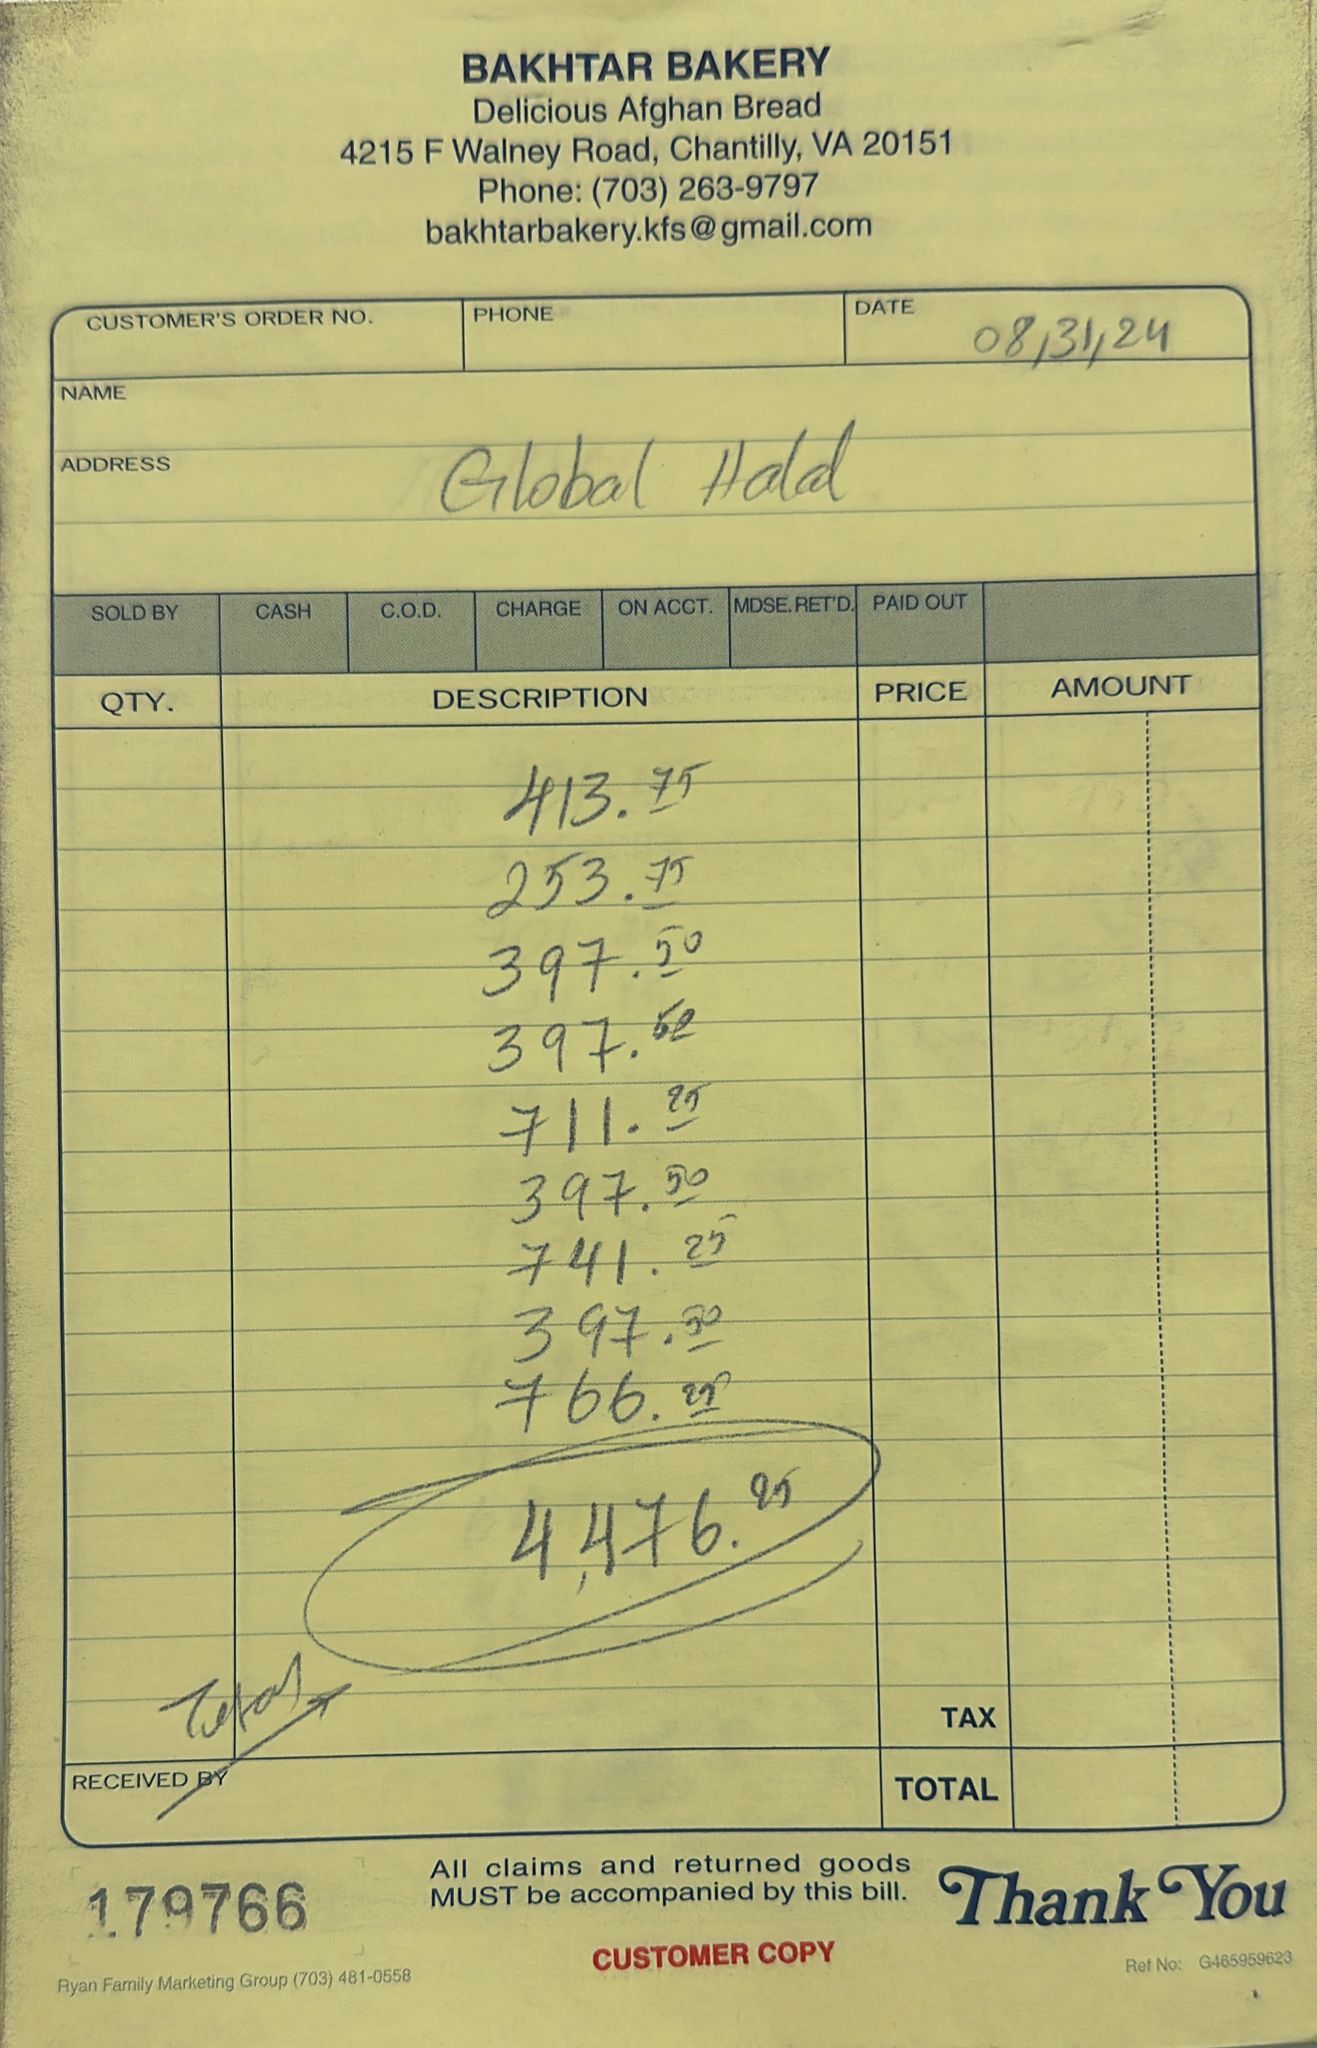 BAKHTAR BAKERY
Delicious Afghan Bread
4215 F Walney Road, Chantilly, VA 20151
Phone: (703) 263-9797
bakhtarbakery.kfs@gmail.com
CUSTOMER'S ORDER NO. PHONE DATE 08,31,24
NAME
ADDRESS Global Halal
SOLD BY CASH C.O.D. CHARGE ON ACCT. MDSE. RET'D. PAID OUT
QTY. DESCRIPTION PRICE AMOUNT
413.75
253.75
397.50
397.50
711.25
397.50
741.25
397.50
766.25
4,476.25
Total
TAX
RECEIVED BY TOTAL
179766
All claims and returned goods
MUST be accompanied by this bill.
Thank You
CUSTOMER COPY
Ryan Family Marketing Group (703) 481-0558
Ref No: G465959623